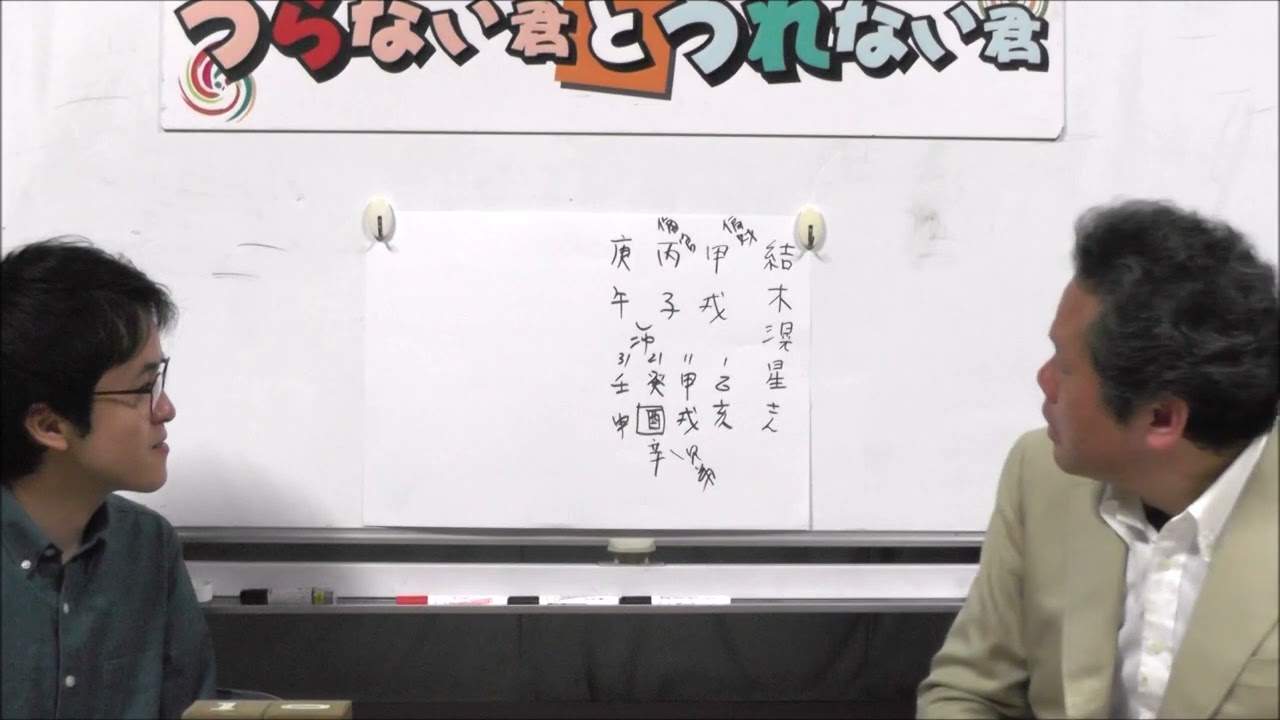 つらない君とつれない君
結木滉星さん
偏財
甲戌
丙子
庚午
冲
1 乙亥
11 甲戌
21 癸酉
31 壬申
辛
10